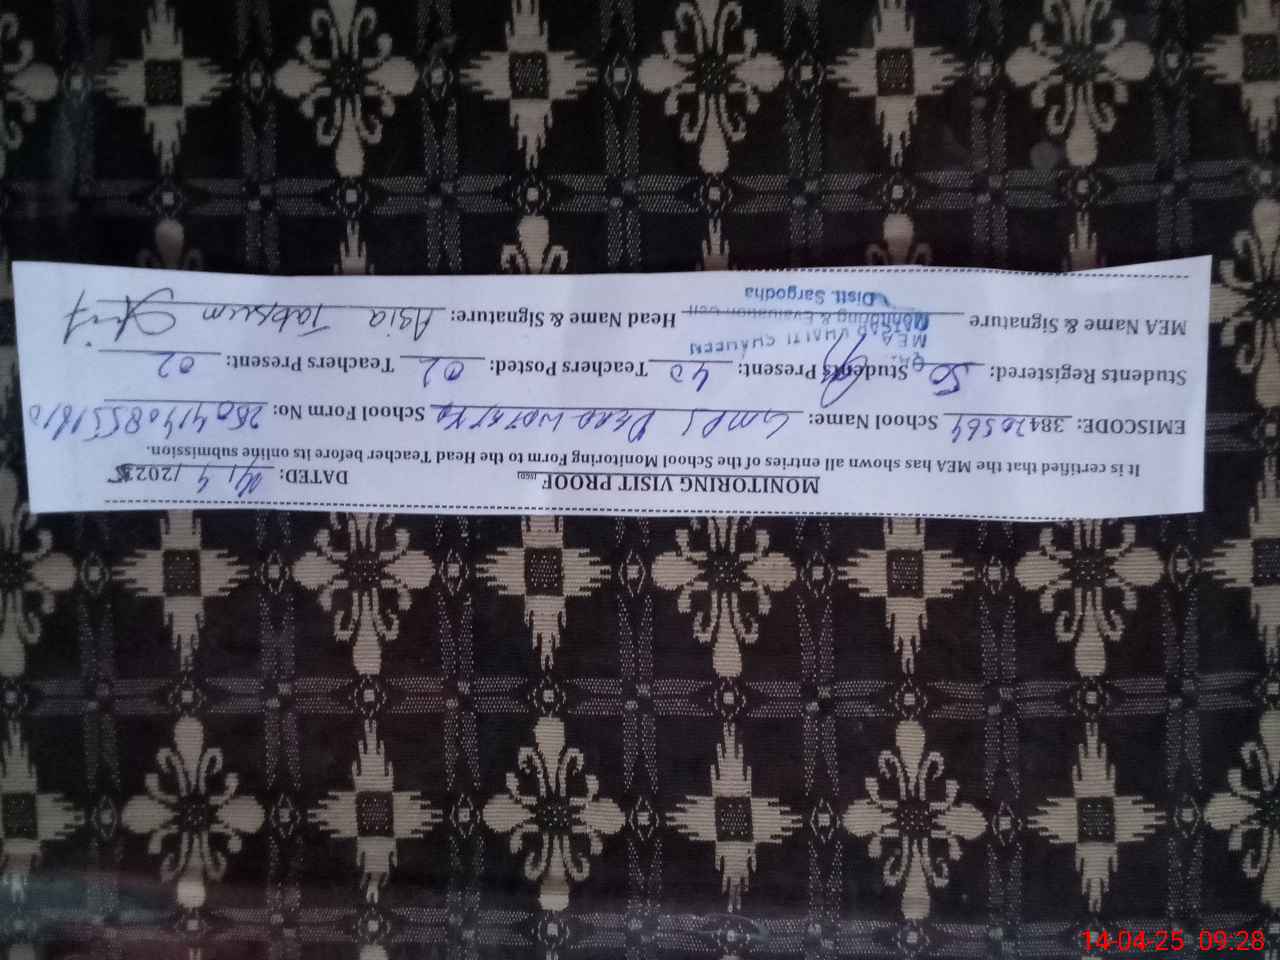 MONITORING VISIT PROOF (SED) DATED: 14/4/2025
It is certified that the MEA has shown all entries of the School Monitoring Form to the Head Teacher before its online submission.
EMISCODE: 38420564 School Name: GMPS School Form No:
Students Registered: 50 Students Present: 40 Teachers Posted: 02 Teachers Present: 02
MEA Name & Signature Head Name & Signature: Asia Tabsum
MEA
Monitoring & Evaluation Cell
Distt. Sargodha
14-04-25 09:28